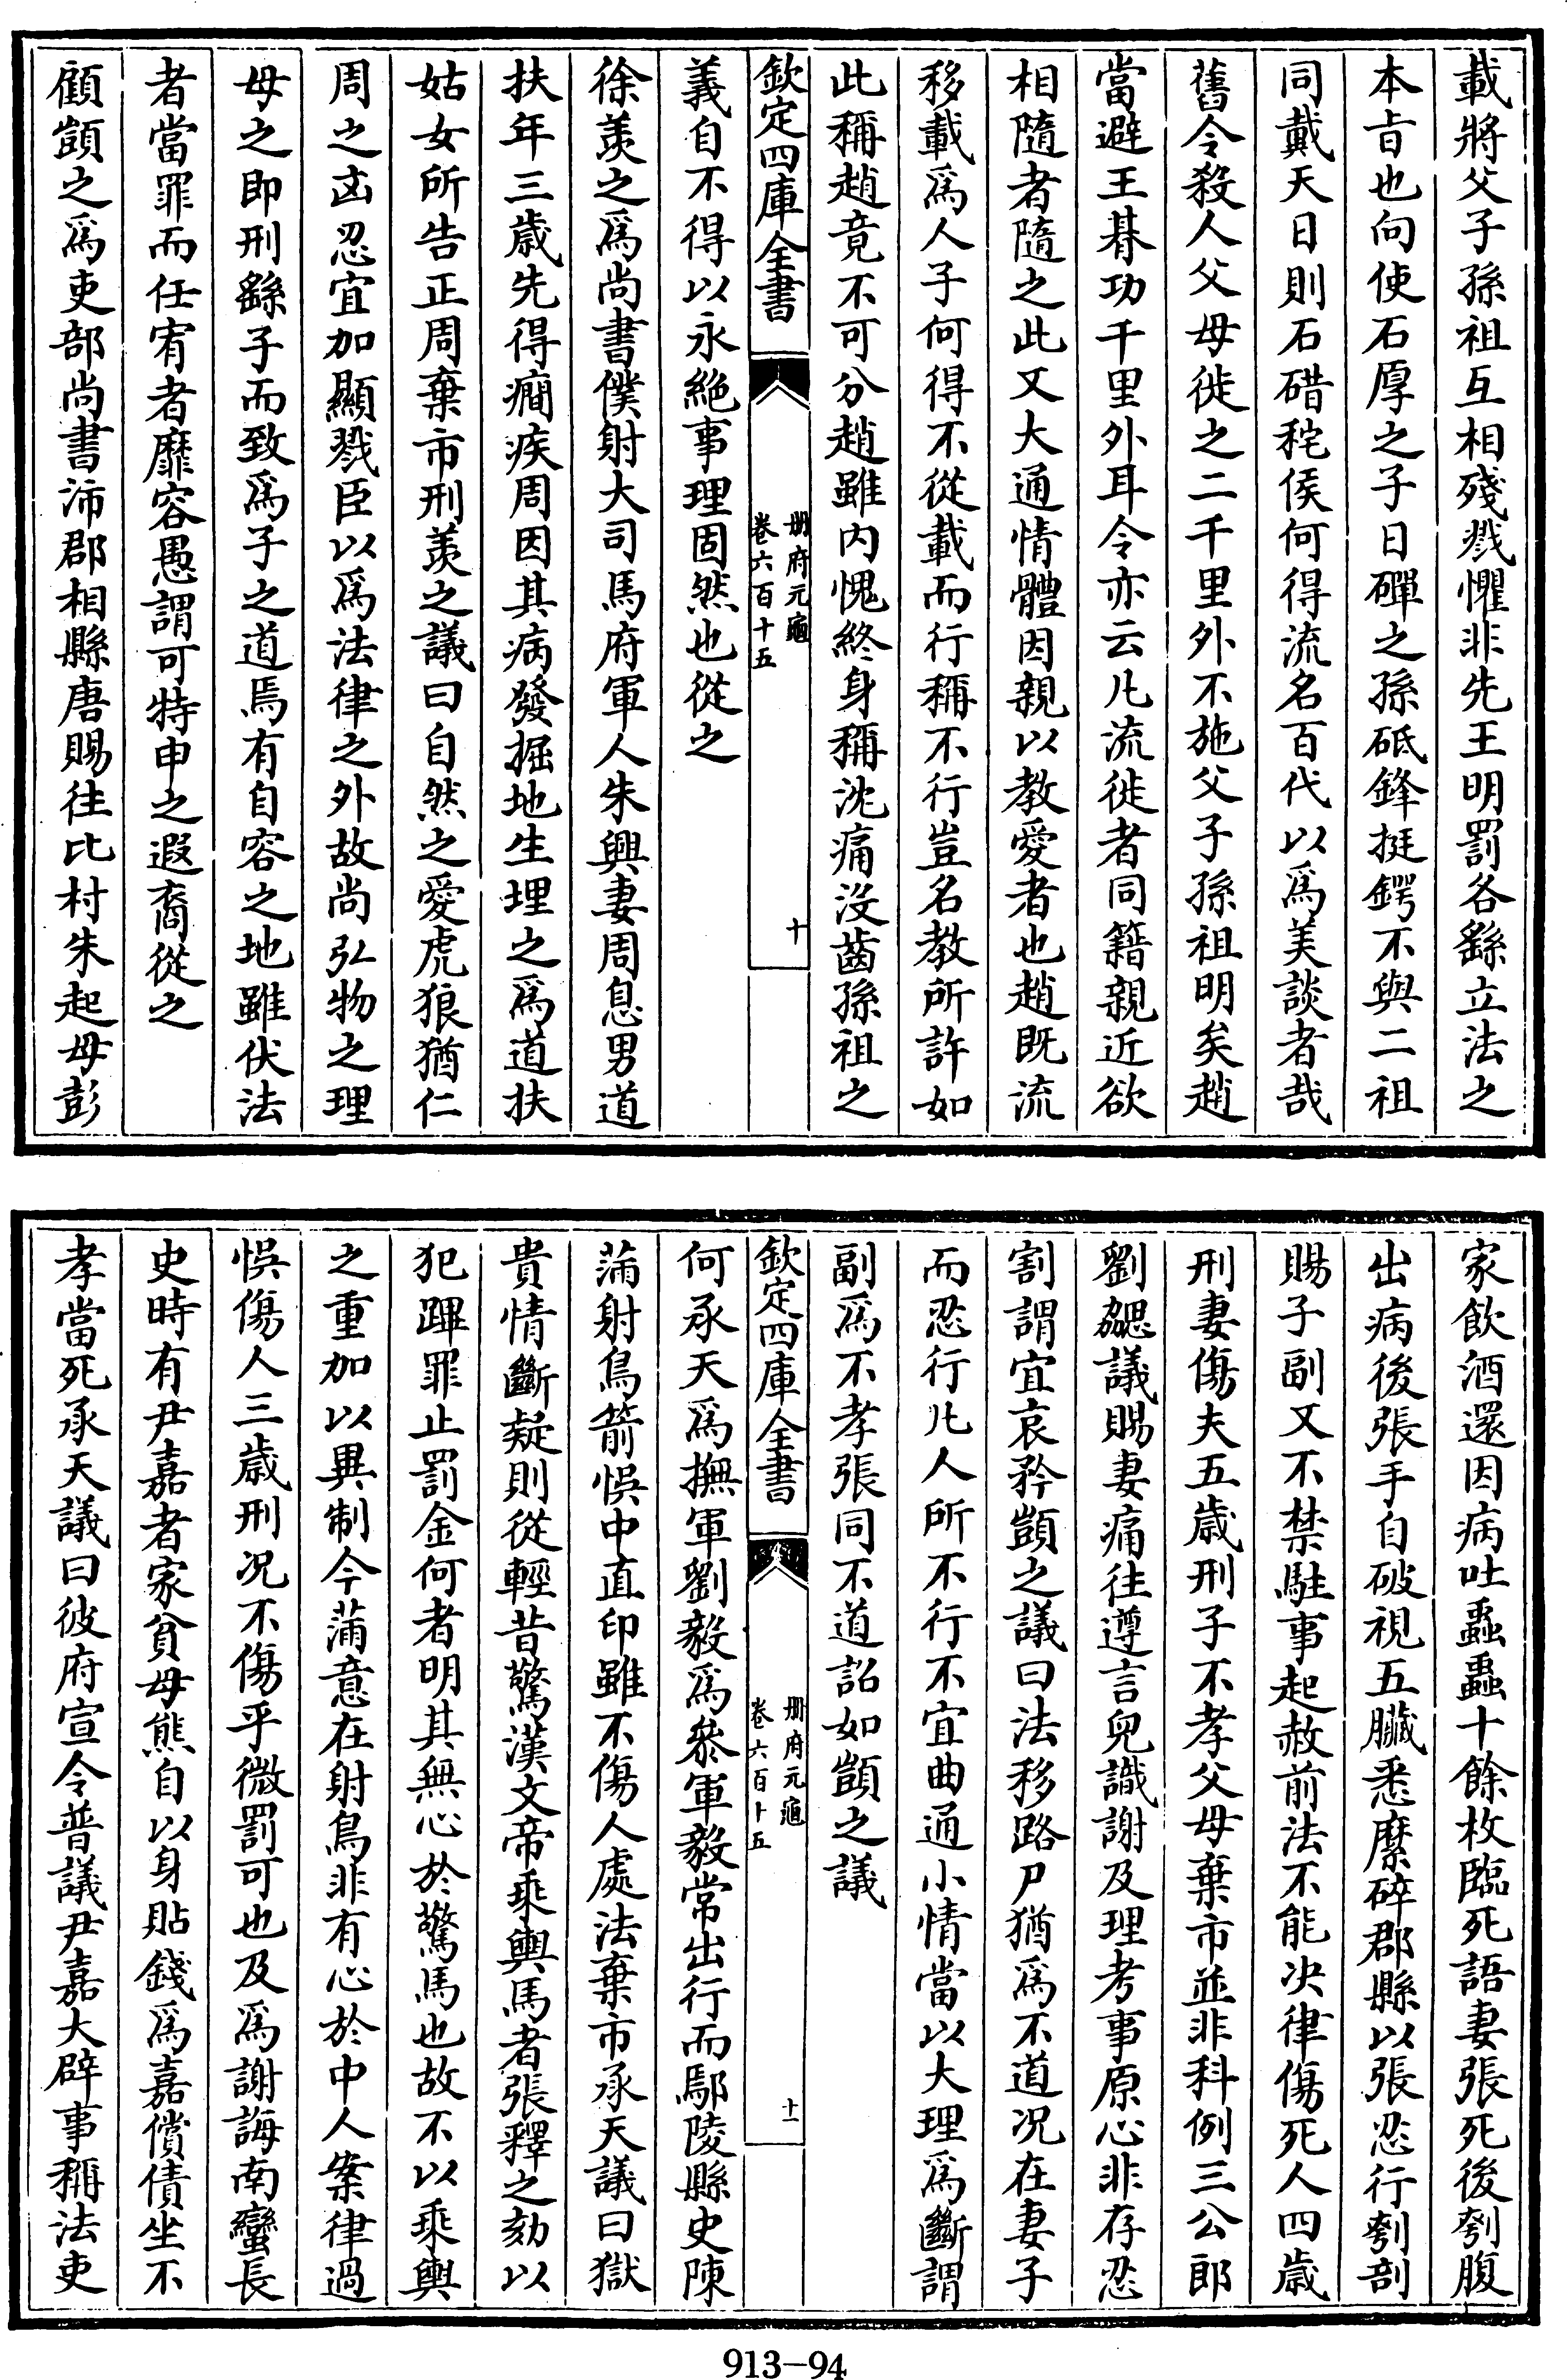 載將父子孫祖互相殘戮懼非先王明罰各繇立法之
本㫖也向使石厚之子日磾之孫砥鋒挺鍔不與二祖
同戴天日則石碏秺侯何得流名百代以為美談者哉
舊令殺人父母徙之二千里外不施父子孫祖明矣趙
當避王朞功千里外耳令亦云凡流徙者同籍親近欲
相隨者隨之此又大通情體因親以教愛者也趙既流
移載為人子何得不從載而行稱不行豈名教所許如
此稱趙竟不可分趙雖内愧終身稱沈痛没齒孫祖之
欽定四庫全書
册府元龜
卷六百十五
十
義自不得以永絶事理固然也從之
徐羨之為尚書僕射大司馬府軍人朱興妻周息男道
扶年三歳先得癎疾周因其病發掘地生埋之為道扶
姑女所告正周棄市刑羨之議曰自然之愛虎狼猶仁
周之凶忍宜加顯戮臣以為法律之外故尚弘物之理
母之即刑繇子而致為子之道焉有自容之地雖伏法
者當罪而在宥者靡容愚謂可特申之遐裔從之
顧顗之為吏部尚書沛郡相縣唐賜往比村朱起母彭
家飲酒還因病吐蠱蠱十餘枚臨死語妻張死後刳腹
出病後張手自破視五臟悉縻碎郡縣以張忍行刳剖
賜子副又不禁駐事起赦前法不能决律傷死人四歳
刑妻傷夫五歳刑子不孝父母棄市並非科例三公郎
劉勰議賜妻痛往遵言兒識謝及理考事原心非存忍
割謂宜哀矜顗之議曰法移路尸猶為不道况在妻子
而忍行凡人所不行不宜曲通小情當以大理為斷謂
副為不孝張同不道詔如顗之議
欽定四庫全書
册府元龜
卷六百十五
十一
何承天為撫軍劉毅為叅軍毅常出行而鄢陵縣史陳
蒲射鳥箭悮中直印雖不傷人處法棄市承天議曰獄
貴情斷疑則從輕昔驚漢文帝乘輿馬者張釋之劾以
犯蹕罪止罰金何者明其無心於驚馬也故不以乘輿
之重加以異制今蒲意在射鳥非有心於中人案律過
悮傷人三歳刑况不傷乎微罰可也及為謝誨南蠻長
史時有尹嘉者家貧母熊自以身貼錢為嘉償債坐不
孝當死承天議曰彼府宣令普議尹嘉大辟事稱法吏
913-94